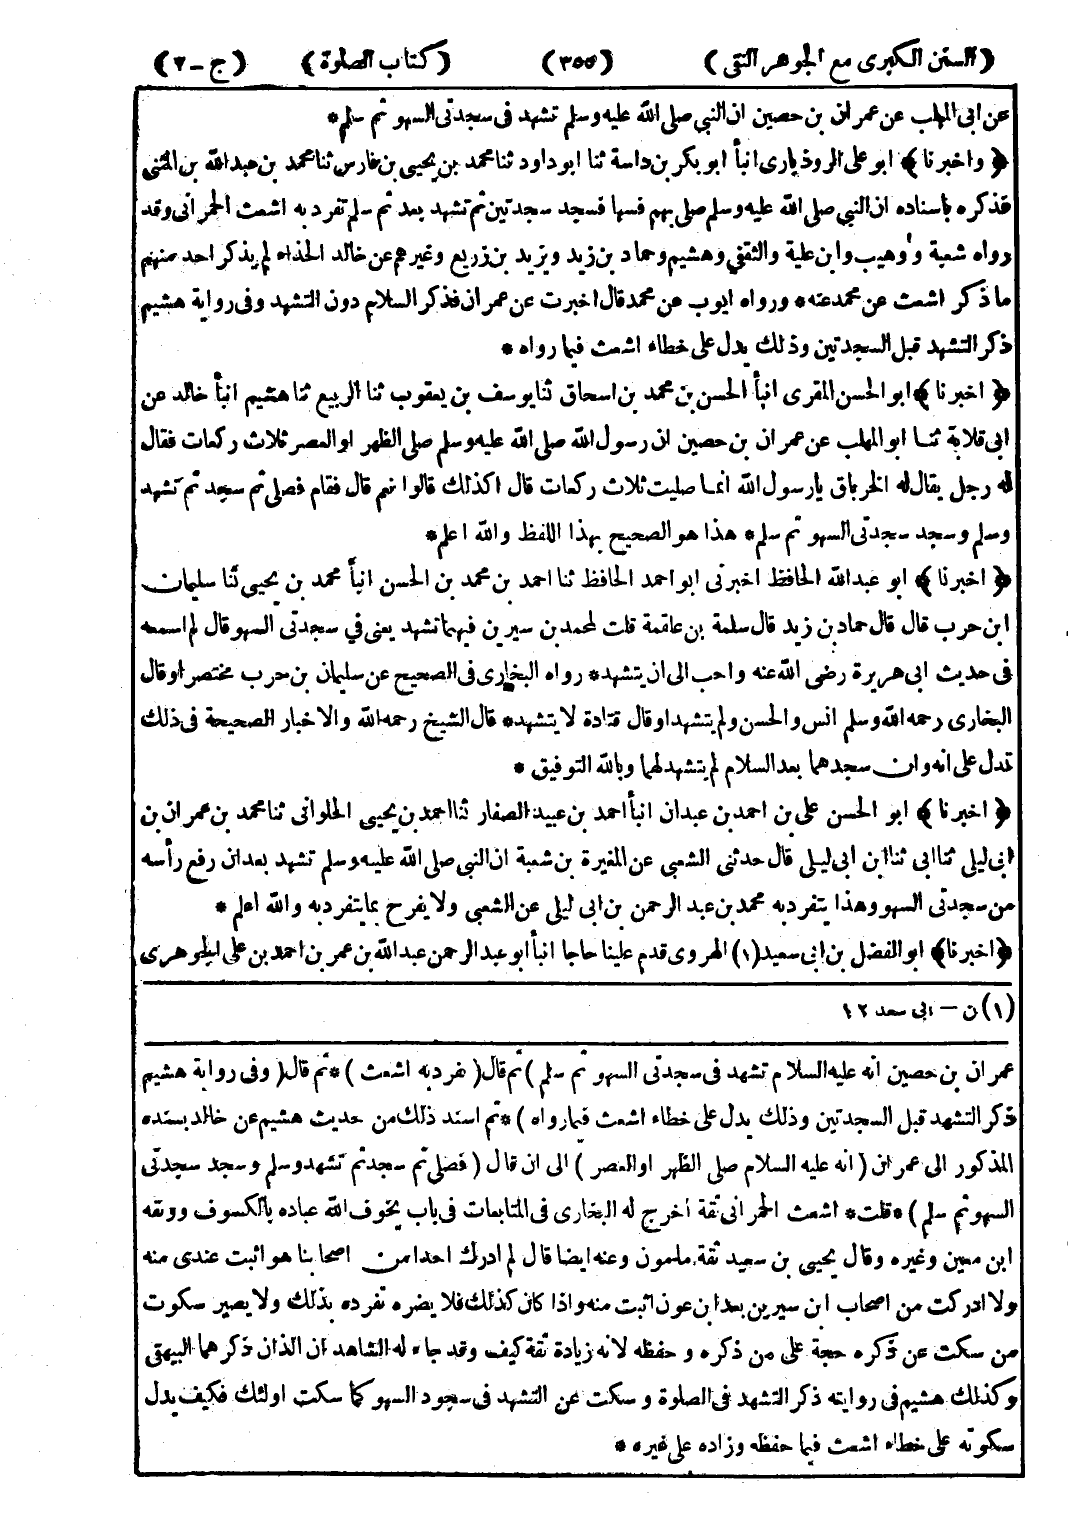 (السنن الكبرى مع الجوهر النقى) (٣٥٥) (كتاب الصلوة) (ج - ٢)
عن ابى المهلب عن عمران بن حصين ان النبي صلى الله عليه وسلم تشهد فى سجدتى السهو ثم سلم*
﴿ واخبرنا ﴾ ابو على الروذبارى انبأ ابو بكر بن داسة ثنا ابو داود ثنا محمد بن يحيى بن فارس ثنا محمد بن عبدالله بن المثنى
فذكره باسناده ان النبي صلى الله عليه وسلم صلى بهم فسها فسجد سجدتين ثم تشهد بعد ثم سلم تفرد به اشعث الحمرانى وقد
رواه شعبة ووهيب وابن علية والثقفي وهشيم وحماد بن زيد ويزيد بن زريع وغيرهم عن خالد الحذاء لم يذكر احد منهم
ما ذكر اشعث عن محمد عنه* ورواه ايوب عن محمد قال اخبرت عن عمران فذكر السلام دون التشهد وفى رواية هشيم
ذكر التشهد قبل السجدتين وذلك يدل على خطاء اشعث فيما رواه *
﴿ اخبرنا ﴾ ابو الحسن المقرى انبأ الحسن بن محمد بن اسحاق ثنا يوسف بن يعقوب ثنا ابو الربيع ثنا هشيم انبأ خالد عن
ابى قلابة ثنا ابو المهلب عن عمران بن حصين ان رسول الله صلى الله عليه وسلم صلى الظهر او العصر ثلاث ركعات فقال
له رجل يقال له الخرباق يارسول الله انما صليت ثلاث ركعات قال اكذلك قالوا نعم قال فقام فصلى ثم سجد ثم تشهد
وسلم وسجد سجدتى السهو ثم سلم* هذا هو الصحيح بهذا اللفظ والله اعلم*
﴿ اخبرنا ﴾ ابو عبدالله الحافظ اخبرنى ابو احمد الحافظ ثنا احمد بن محمد بن الحسن انبأ محمد بن يحيى ثنا سليمان
ابن حرب قال قال حماد بن زيد قال سلمة بن علقمة قلت لمحمد بن سيرين فيهما تشهد يعنى في سجدتى السهو قال لم اسمعه
فى حديث ابى هريرة رضى الله عنه واحب الى ان يتشهد* رواه البخارى فى الصحيح عن سليمان بن حرب مختصرا وقال
البخارى رحمه الله وسلم انس والحسن ولم يتشهدا وقال قتادة لا يتشهد* قال الشيخ رحمه الله والاخبار الصحيحة فى ذلك
تدل على انه وان سجدهما بعد السلام لم يتشهد لهما وبالله التوفيق *
﴿ اخبرنا ﴾ ابو الحسن على بن احمد بن عبدان انبأ احمد بن عبيد الصفار ثنا احمد بن يحيى الحلوانى ثنا محمد بن عمران بن
ابى ليلى ثنا ابى ثنا ابن ابى ليلى قال حدثنى الشعبي عن المغيرة بن شعبة ان النبي صلى الله عليه وسلم تشهد بعد ان رفع رأسه
من سجدتى السهو وهذا يتفرد به محمد بن عبد الرحمن بن ابى ليلى عن الشعبي ولا يفرح بما يتفرد به والله اعلم *
﴿اخبرنا﴾ ابو الفضل بن ابى سعيد(١) الهروى قدم علينا حاجا انبأ ابو عبد الرحمن عبدالله بن عمر بن احمد بن على الجوهرى
(١) ن - ابى سعد ١٢
عمران بن حصين انه عليه السلام تشهد فى سجدتى السهو ثم سلم ) ثم قال ( تفرد به اشعث )* ثم قال ( وفى رواية هشيم
ذكر التشهد قبل السجدتين وذلك يدل على خطاء اشعث فيما رواه ) * ثم اسند ذلك من حديث هشيم عن خالد بسنده
المذكور الى عمران ( انه عليه السلام صلى الظهر او العصر ) الى ان قال ( فصلى ثم سجد ثم تشهد وسلم وسجد سجدتى
السهو ثم سلم ) *قلت* اشعث الحمرانى ثقة اخرج له البخارى فى المتابعات فى باب يخوف الله عباده بالكسوف ووثقه
ابن معين وغيره وقال يحيى بن سعيد ثقة مأمون وعنه ايضا قال لم ادرك احدا من اصحابنا هو اثبت عندى منه
ولا ادركت من اصحاب ابن سيرين بعد ابن عون اثبت منه واذا كان كذلك فلا يضره تفرده بذلك ولا يصير سكوت
من سكت عن ذكره حجة على من ذكره و حفظه لانه زيادة ثقة كيف وقد جاء له الشاهد ان الذان ذكرهما البيهقى
وكذلك هشيم فى روايته ذكر التشهد فى الصلوة و سكت عن التشهد فى سجود السهو كما سكت اولئك فكيف يدل
سكوته على خطاء اشعث فيما حفظه وزاده على غيره *